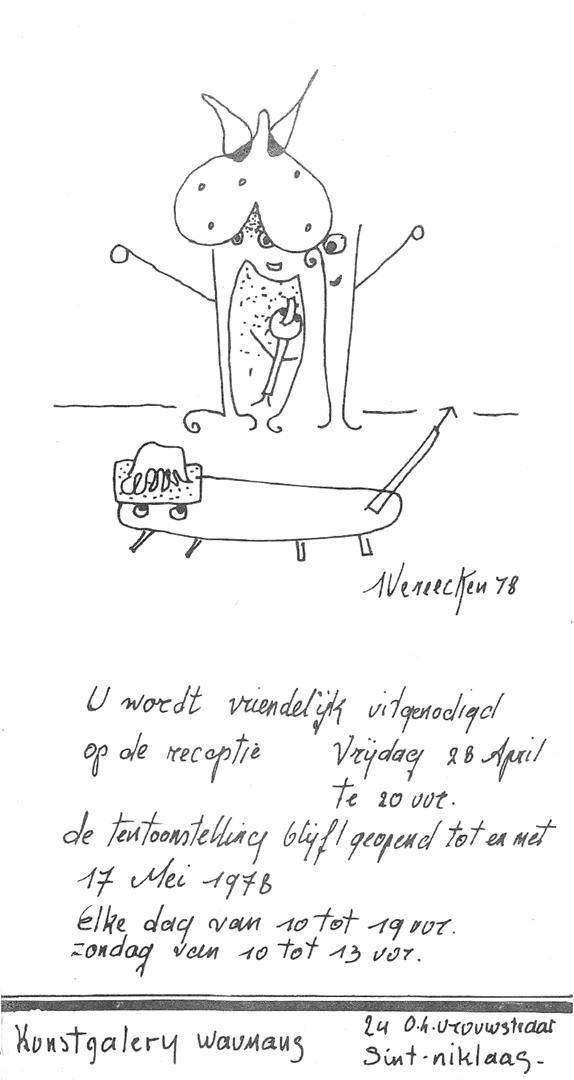 Vereecken 78
U wordt vriendelijk uitgenodigd
op de receptie Vrijdag 28 April
te 20 uur.
de tentoonstelling blijft geopend tot en met
17 Mei 1978
Elke dag van 10 tot 19 uur.
zondag van 10 tot 13 uur.
Kunstgalery Waumans
24 O.L.Vrouwstraat
Sint-niklaas-